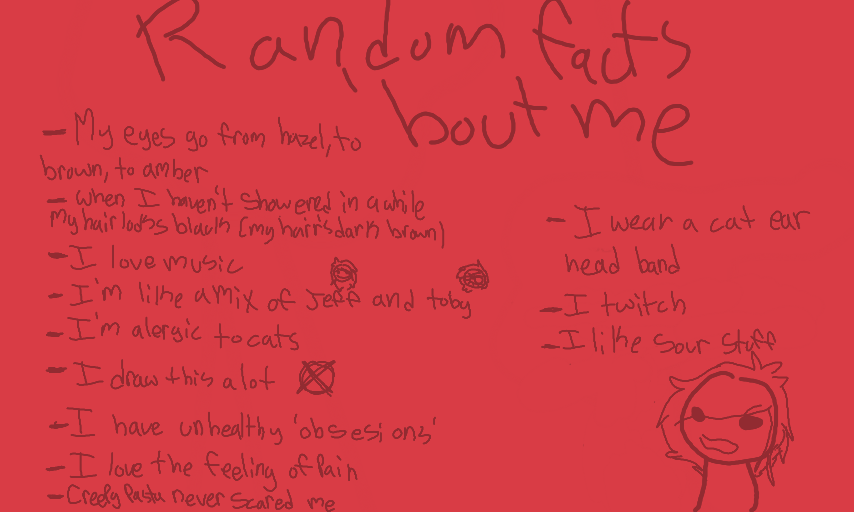 Random facts
bout me
- My eyes go from hazel, to
brown, to amber
- when I haven't showered in a while
My hair looks black (my hair's dark brown)
- I love music
- I'm like a mix of Jeff and toby
- I'm alergic to cats
- I draw this a lot
- I have unhealthy 'obsesions'
- I love the feeling of Pain
- Creepy Pasta never scared me
- I wear a cat ear
head band
- I twitch
- I like sour stuff